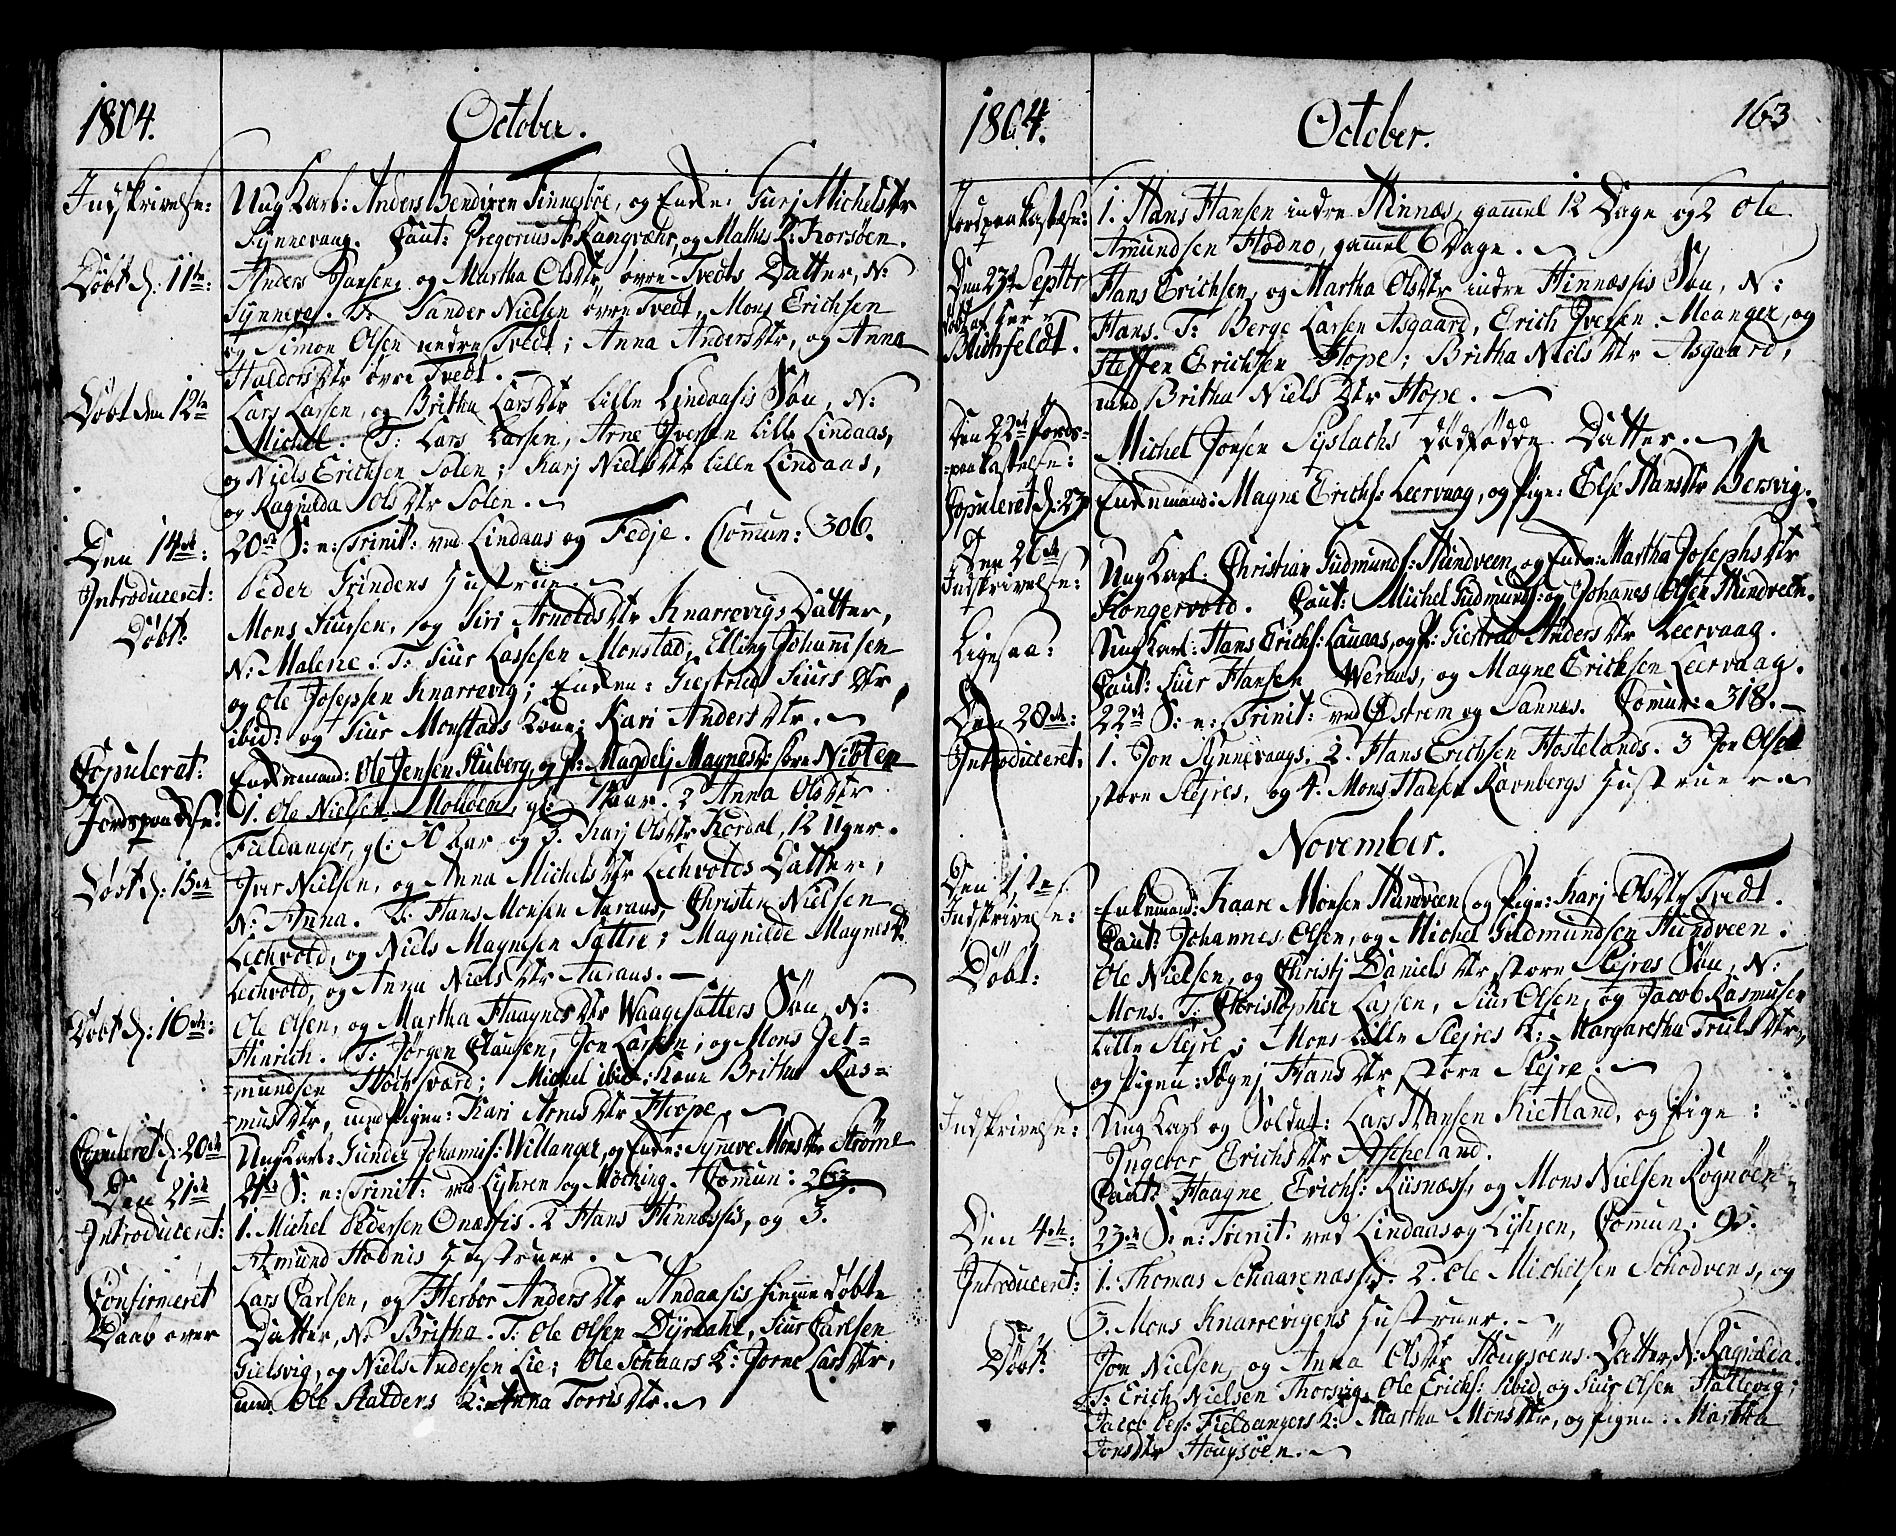 1804. October.
Indskrivelse: Ung Karl: Anders Bendixen Tinnesbøe, og Enke: Gurj Michelsdtr
Synnevaag. Caut: Gregorius A: Rangvæhr, og Mathis L: Korsøen.
Døbt d: 11te: Anders Hansens og Martha Olsdtr øvre Tvedts Datter, N:
Synneve. T: Sander Nielsen øvre Tvedt, Mons Erichsen
og Simon Olsen nedre Tvedt; Anna Andersdtr, og Anna
Haldorsdtr øvre Tvedt. —
Døbt den 12te Lars Larsen, og Britha Larsdtr Lille Lindaasis Søn, N:
Michel. T: Lars Larsen, Arne Iversen Lille Lindaas,
og Niels Erichsen Solen; Karj Nielsdtr Lille Lindaas,
og Ragnilda Olsdtr Solen. —
Den 14de: 20de S: n: Trinit: ved Lindaas og Fedje. Commun: 306.
Introduceret: Peder Grindens Hustrue. —
Døbt: Mons Siursen, og Siri Arnoldsdtr Knarrevigs Datter,
N: Malene. T: Siur Lassesen Monstad, Elling Johannissen
og Ole Josepsen Knarrevig; Enken: Giertrud Siursdtr,
ibid: og Siur Monstads Kone; Kari Andersdtr. —
Copuleret: Enkemand: Ole Jensen Stuberg, og P: Magdelj Magnesd: store Nibten
Jordspaakst: 1. Ole Nielsen Molden, gl: Aar. 2 Anna Olsdtr
Fieldanger, gl: Aar og 3. Karj Olsdtr Kordal, 12 Uger.
Døbt d: 15de Iver Nielsen, og Anna Michelsdtr Lechvolds Datter,
N: Anna. T: Hans Monsen Auraas, Christen Nielsen
Lechvold, og Niels Magnesen Sættre; Magnilde Magnesd:
Lechvold, og Anna Nielsdtr Auraas. —
Døbt d: 16de: Ole Olsen, og Martha Haagnesdtr Waagesætters Søn, N:
Hinrich. T: Jørgen Clausen, Jon Larsen, og Mons Jel-
=mundsen Høchsværd; Michel ibid: Kone Britha Ras=
=musdtr, und Pigen: Kari Arnesdtr Hope. —
Copuleret d: 20de Ung Karl: Gunder Johannis: Willanger, og Enke: Synneve Monsdtr Strøme
Den 21de 21de S: n: Trinit: ved Lyhren og Møching. Commun: 263.
Introduceret: 1. Michel Pedersen Onæssis. 2 Hans Hinnæssis, og 3.
Amund Hodnis Hustruer. —
Confirmeret Lars Carlsen, og Herbor Andersdtr Andaasis hiemmedøbte
Daab over Datter, N: Britha. T: Ole Olsen Dyrdahl, Siur Carlsen
Gielsvig, og Niels Andersen Lie; Ole Schaars K: Jorne Larsdtr,
und Ole Halders K: Anna Torrisdtr. —
1804. October. 163
Jordspaakastelse: 1. Hans Hansen indre Hinnæs, gammel 12 Dage og 2 Ole
Amundsen Hodno, gammel 6 Dage. —
Den 23de Septbr Hans Erichsen, og Martha Olsdtr indre Hinnæssis Søn, N:
døbt af Herr Hans. T: Berge Larsen Asgaard, Erich Iversen Meanger, og
Blichfeldt. Steffen Erichsen Hope; Britha Nielsdtr Asgaard,
und Britha Nielsdtr Hope. —
Den 22de Jords= Michel Jonsen Syslachs dødfødde Datter. —
=paakastelse:
Copuleret d: 23de Enkemand: Magne Erichs: Leervaag, og Pige: Else Hansdtr Bersvig.
Den 26de Ung Karl: Christian Gudmunds: Hundveen, og Enke: Martha Josephsdtr
Indskrivelse: Kongervold. Caut: Michel Gudmunds: og Johannes Olsen Hundveen.
Ligesaa: Ung Karl: Hans Erichs: Lauaas, og P: Giertrud Andersdtr Leervaag.
Caut: Siur Hansen Weraas, og Magne Erichsen Leervaag.
Den 28de: 22de S: n: Trinit: ved Østrem og Sannæs. Commun: 318. —
Introduceret: 1. Jon Synnevaags. 2. Hans Erichsen Hostelands. 3 Jon Olsen
store Slejres, og 4. Mons Hansen Ravnbergs Hustruer —
November.
Den 1te Enkemand: Kaare Monsen Hundveen og Pige: Karj Olsdtr Tvedt.
Indskrivelse: Caut: Johannes Olsen, og Michel Gudmundsen Hundveen.
Døbt: Ole Nielsen, og Christj Danielsdtr store Slejres Søn, N:
Mons. T: Christopher Lassen, Siur Olsen, og Jacob Rasmusen
Lille Slejre; Mons Lille Slejres K: Margaretha Trulsdtr,
og Pigen: Søgnj Hansdtr store Slejre. —
Indskrivelse: Ung Karl og Soldat: Lars Hansen Kietland, og Pige:
Ingebor Erichsdtr Ascheland.
Caut: Haagne Erichs: Risnæss, og Mons Nielsen Rognøen
Den 4de: 23de S: n: Trinit: ved Lindaas og Lyhren, Commun: 95.
Introduceret: 1. Thomas Schaarenæssis. 2. Ole Michelsen Schodvens, og
3. Mons Knarrevigens Hustruer. —
Døbt: Jon Nielsen, og Anna Olsdtr Hougsøens Datter, N: Ragnilda.
T: Erich Nielsen Thorsvig, Ole Erichs: ibid, og Siur Olsen Hallevig;
Jacob Fieldangers K: Martha Monsdtr, og Pigen: Martha
Jonsdtr Hougsøen. —